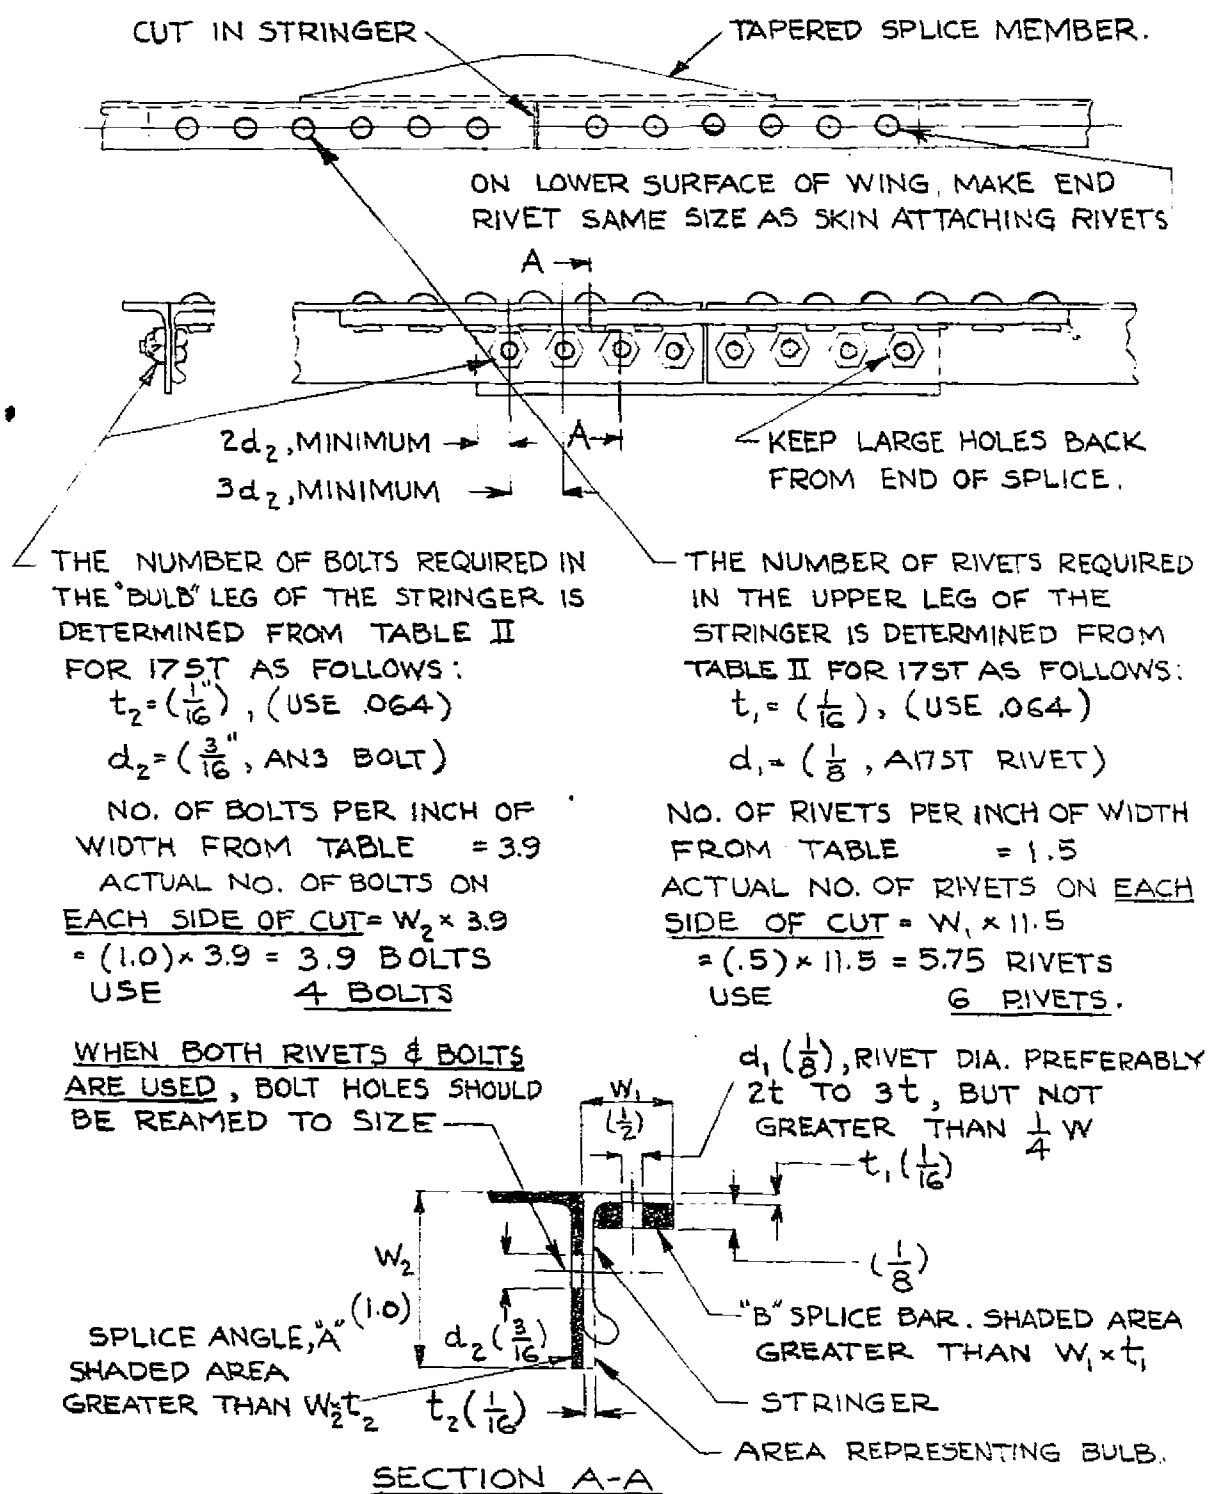 CUT IN STRINGER
TAPERED SPLICE MEMBER.
ON LOWER SURFACE OF WING, MAKE END
RIVET SAME SIZE AS SKIN ATTACHING RIVETS
A
2d₂, MINIMUM
A
3d₂, MINIMUM
KEEP LARGE HOLES BACK
FROM END OF SPLICE.
THE NUMBER OF BOLTS REQUIRED IN
THE "BULB" LEG OF THE STRINGER IS
DETERMINED FROM TABLE II
FOR 17ST AS FOLLOWS:
t₂=(1/16"), (USE .064)
d₂=(3/16", AN3 BOLT)
NO. OF BOLTS PER INCH OF
WIDTH FROM TABLE = 3.9
ACTUAL NO. OF BOLTS ON
EACH SIDE OF CUT = W₂ × 3.9
= (1.0) × 3.9 = 3.9 BOLTS
USE 4 BOLTS
THE NUMBER OF RIVETS REQUIRED
IN THE UPPER LEG OF THE
STRINGER IS DETERMINED FROM
TABLE II FOR 17ST AS FOLLOWS:
t₁= (1/16), (USE .064)
d₁= (1/8, A17ST RIVET)
NO. OF RIVETS PER INCH OF WIDTH
FROM TABLE = 1.5
ACTUAL NO. OF RIVETS ON EACH
SIDE OF CUT = W₁ × 11.5
= (.5) × 11.5 = 5.75 RIVETS
USE 6 RIVETS.
WHEN BOTH RIVETS & BOLTS
ARE USED, BOLT HOLES SHOULD
BE REAMED TO SIZE
d₁ (1/8), RIVET DIA. PREFERABLY
2t TO 3t, BUT NOT
GREATER THAN 1/4 W
W₁
(1/2)
t₁ (1/16)
W₂
(1.0)
(1/8)
d₂ (3/16)
"B" SPLICE BAR. SHADED AREA
GREATER THAN W₁×t₁
SPLICE ANGLE, "A"
SHADED AREA
GREATER THAN W₂×t₂
t₂ (1/16)
STRINGER
AREA REPRESENTING BULB.
SECTION A-A